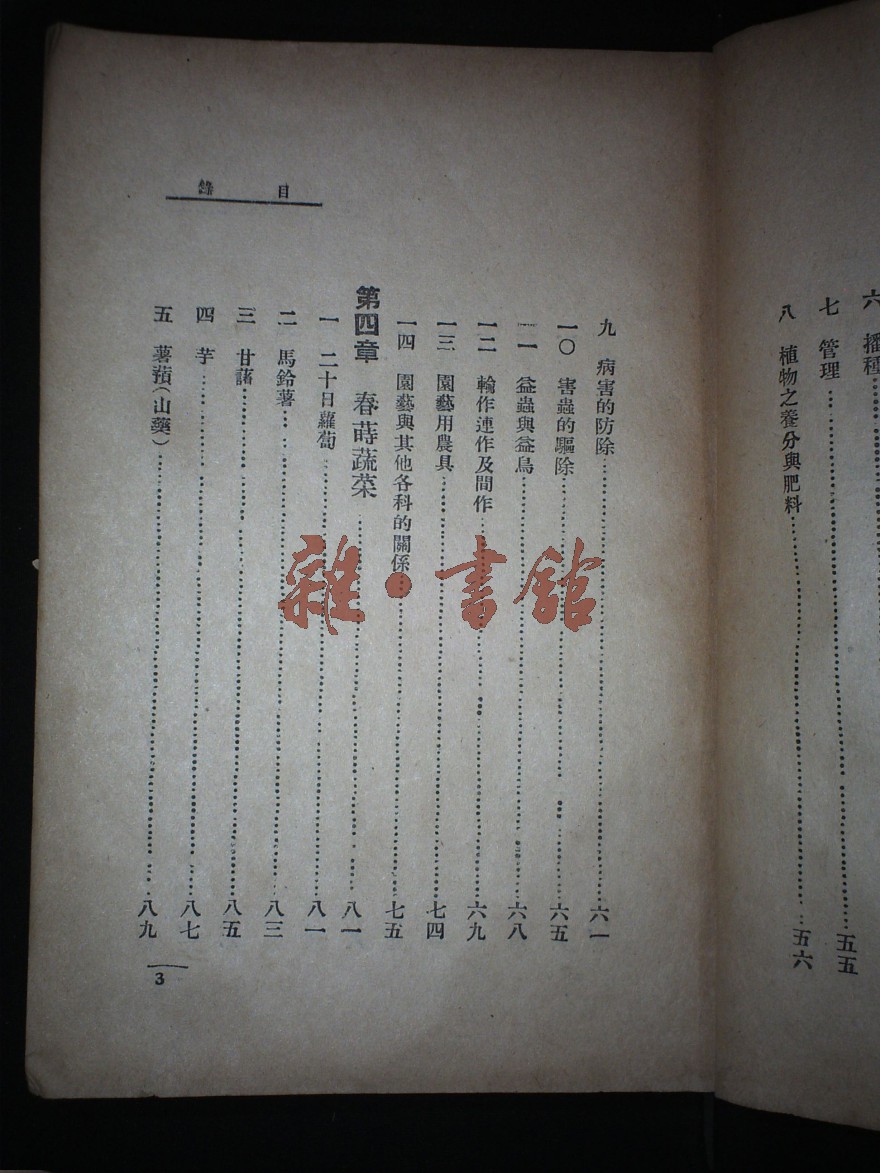 六 播種
七 管理……五五
八 植物之養分與肥料……五六
目錄
九 病害的防除……六一
一〇 害蟲的驅除……六五
一一 益蟲與益鳥……六八
一二 輪作連作及間作……六九
一三 園藝用農具……七四
一四 園藝與其他各科的關係……七五
第四章 春蒔蔬菜……八一
一 二十日蘿蔔……八一
二 馬鈴薯……八三
三 甘藷……八五
四 芋……八七
五 薯蕷(山藥)……八九
3
雜·書館